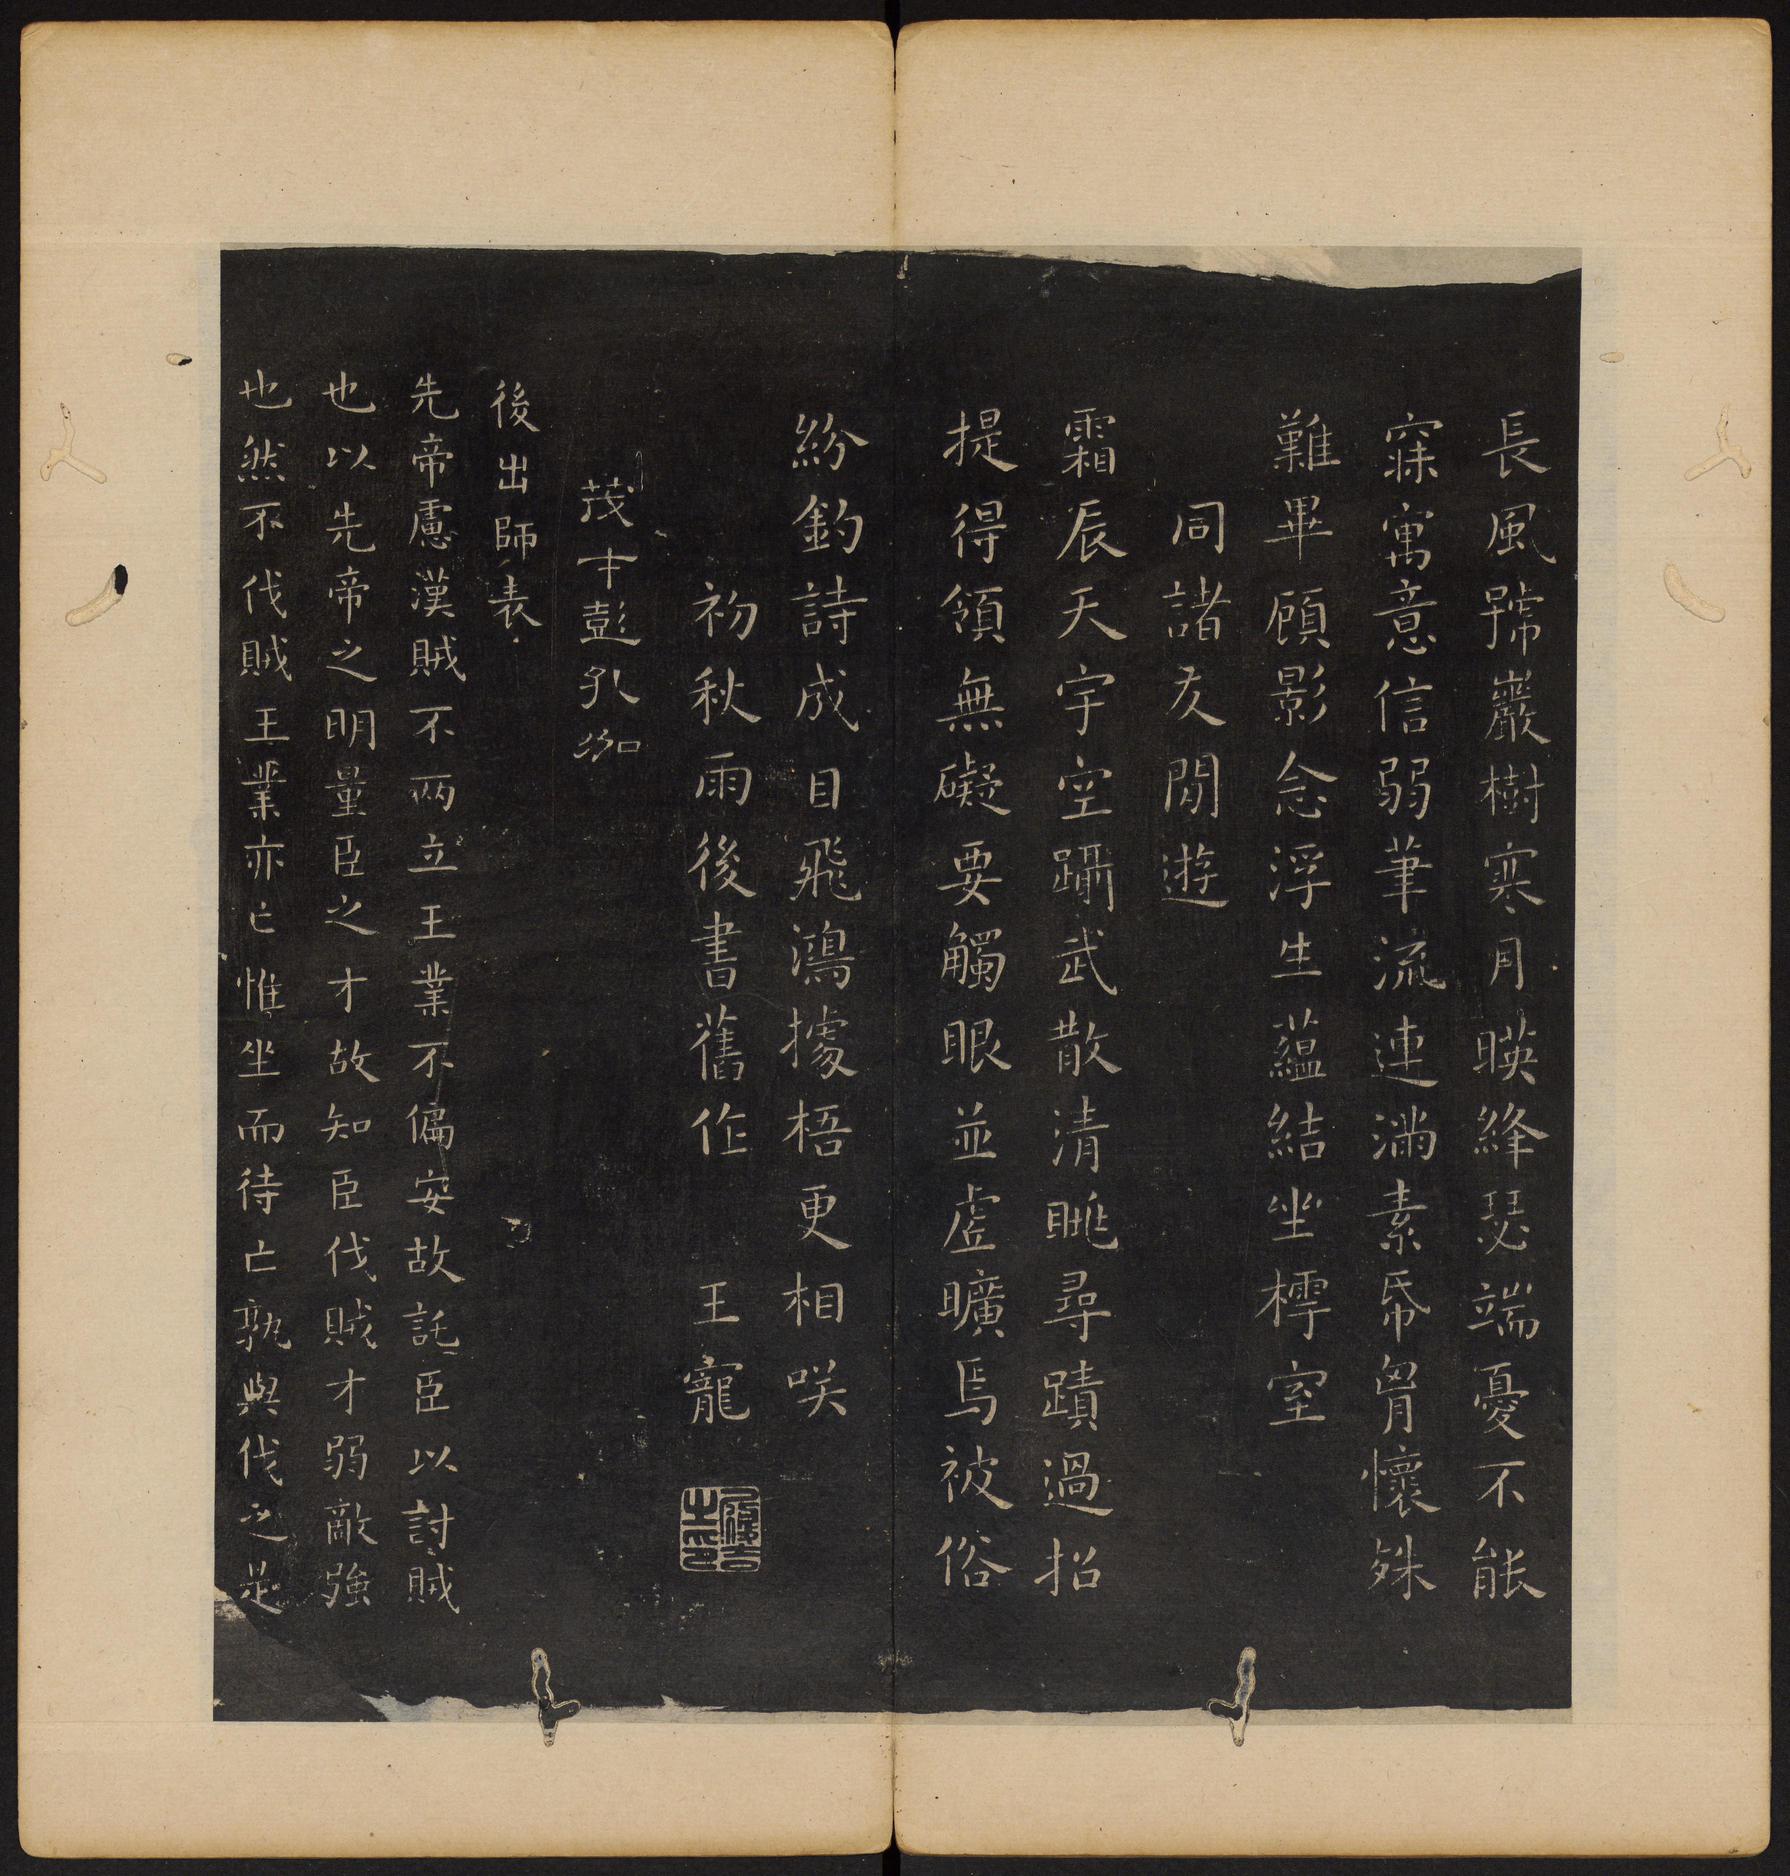 長風號巖樹寒月暎絳瑟端憂不能
寐寓意信弱筆流連滿素帋胷懷殊
難畢顧影念浮生蘊結坐樗室
同諸友閒遊
霜辰天宇空躡武散清眺尋蹟過招
提得領無礙要觸眼並虗曠焉被俗
紛釣詩成目飛鴻據梧更相咲
初秋雨後書舊作 王寵
茂才彭孔
後出師表
先帝慮漢賊不两立王業不偏安故託臣以討賊
也以先帝之明量臣之才故知臣伐賊才弱敵強
也然不伐賊王業亦亡惟坐而待亡孰與伐之是